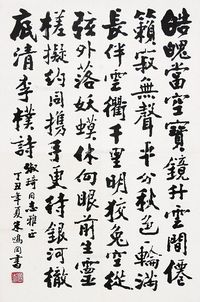 皓魄當空寶鏡升雲間僊
籟寂無聲平分秋色一輪滿
長伴雲衢千里明狡兔空從
弦外落妖蟆休向眼前生靈
槎擬約同攜手更待銀河徹
底清 李樸詩 琦同志雅正
丁丑年夏朱鳴岡書